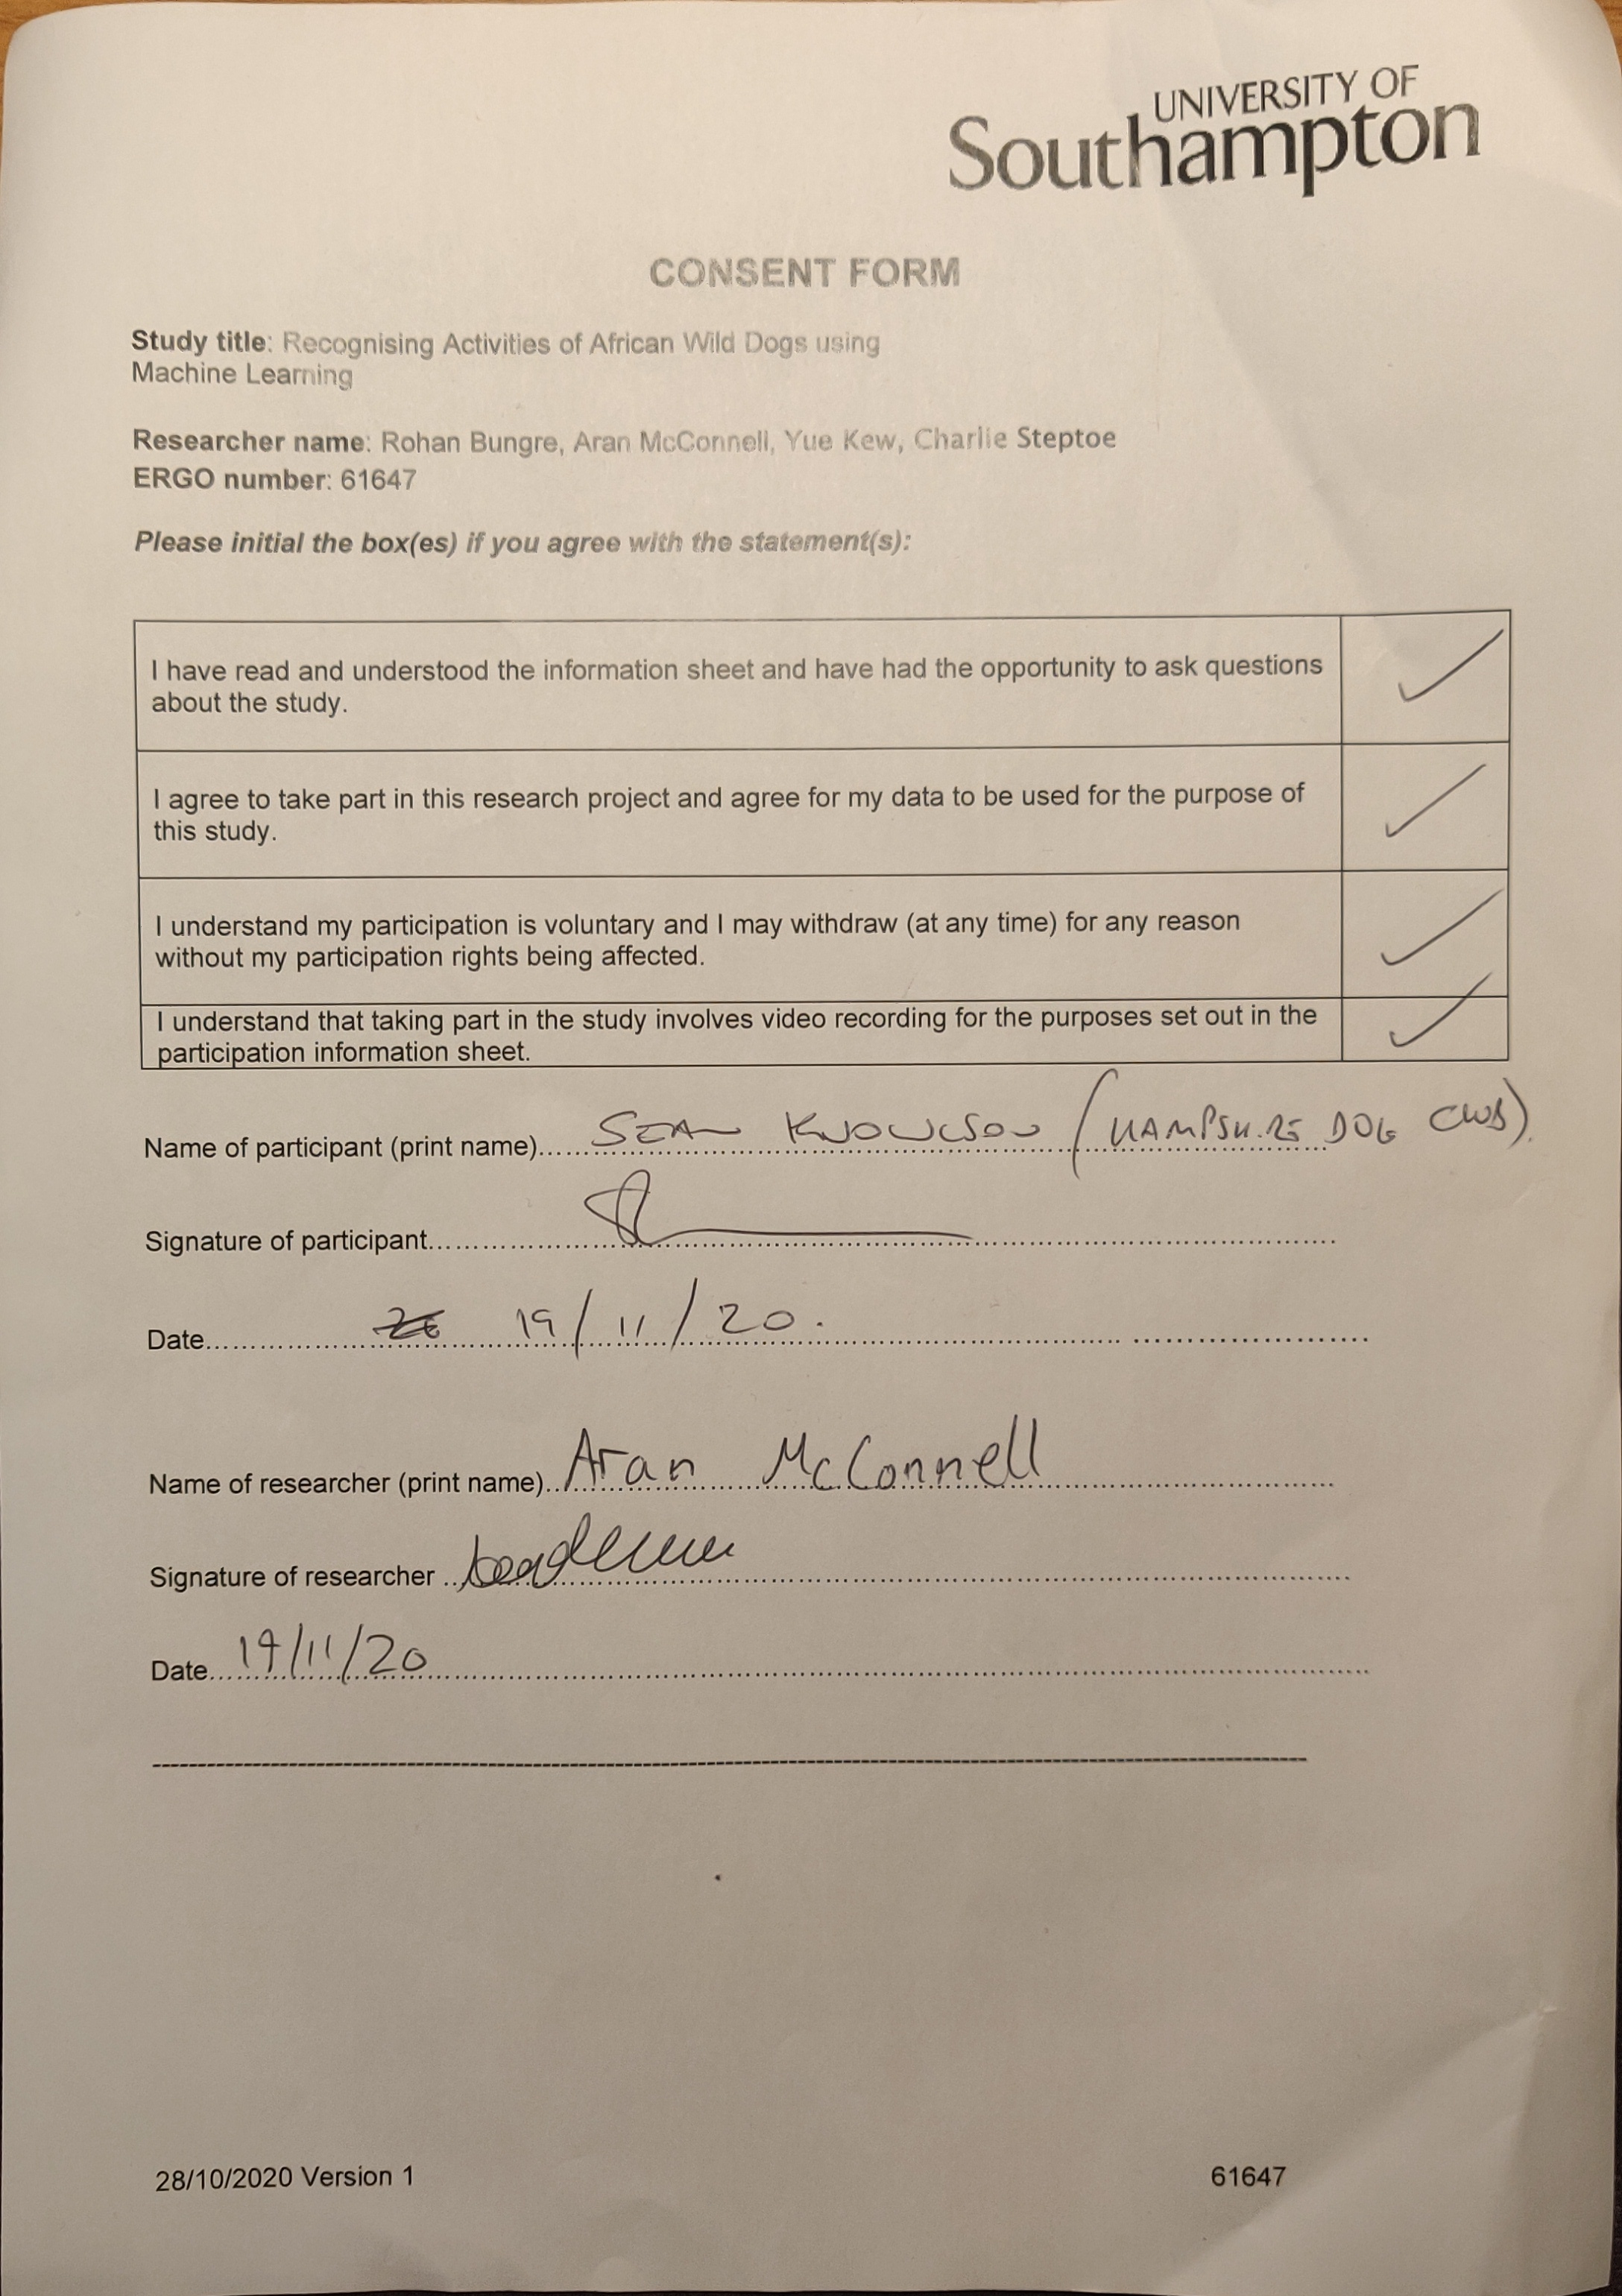 UNIVERSITY OF
Southampton
CONSENT FORM
Study title: Recognising Activities of African Wild Dogs using
Machine Learning
Researcher name: Rohan Bungre, Aran McConnell, Yue Kew, Charlie Steptoe
ERGO number: 61647
Please initial the box(es) if you agree with the statement(s):
I have read and understood the information sheet and have had the opportunity to ask questions
about the study.
I agree to take part in this research project and agree for my data to be used for the purpose of
this study.
I understand my participation is voluntary and I may withdraw (at any time) for any reason
without my participation rights being affected.
I understand that taking part in the study involves video recording for the purposes set out in the
participation information sheet.
Name of participant (print name)...... SEAN KNOWLSON (HAMPSHIRE DOG CLUB).
Signature of participant......
Date...... 19/11/20.
Name of researcher (print name)... Aran McConnell
Signature of researcher ...
Date...... 19/11/20
28/10/2020 Version 1 61647